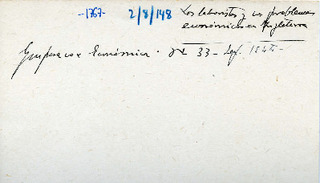 -1767- 2/8/148 Los laboristas y los problemas
económicos en Inglaterra
Económica. Nº 33 - Sept. 1945-